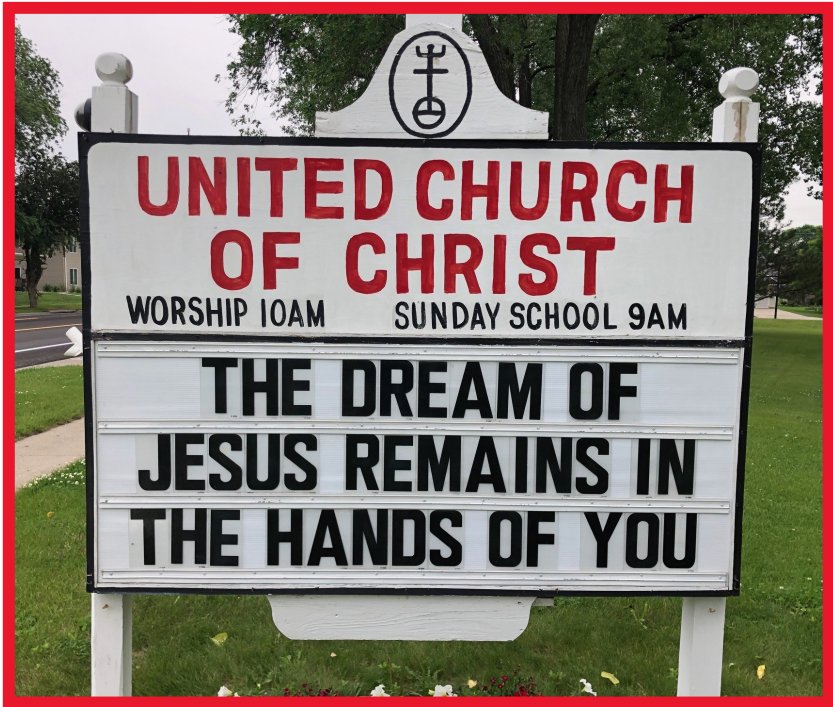 UNITED CHURCH
OF CHRIST
WORSHIP 10AM SUNDAY SCHOOL 9AM
THE DREAM OF
JESUS REMAINS IN
THE HANDS OF YOU